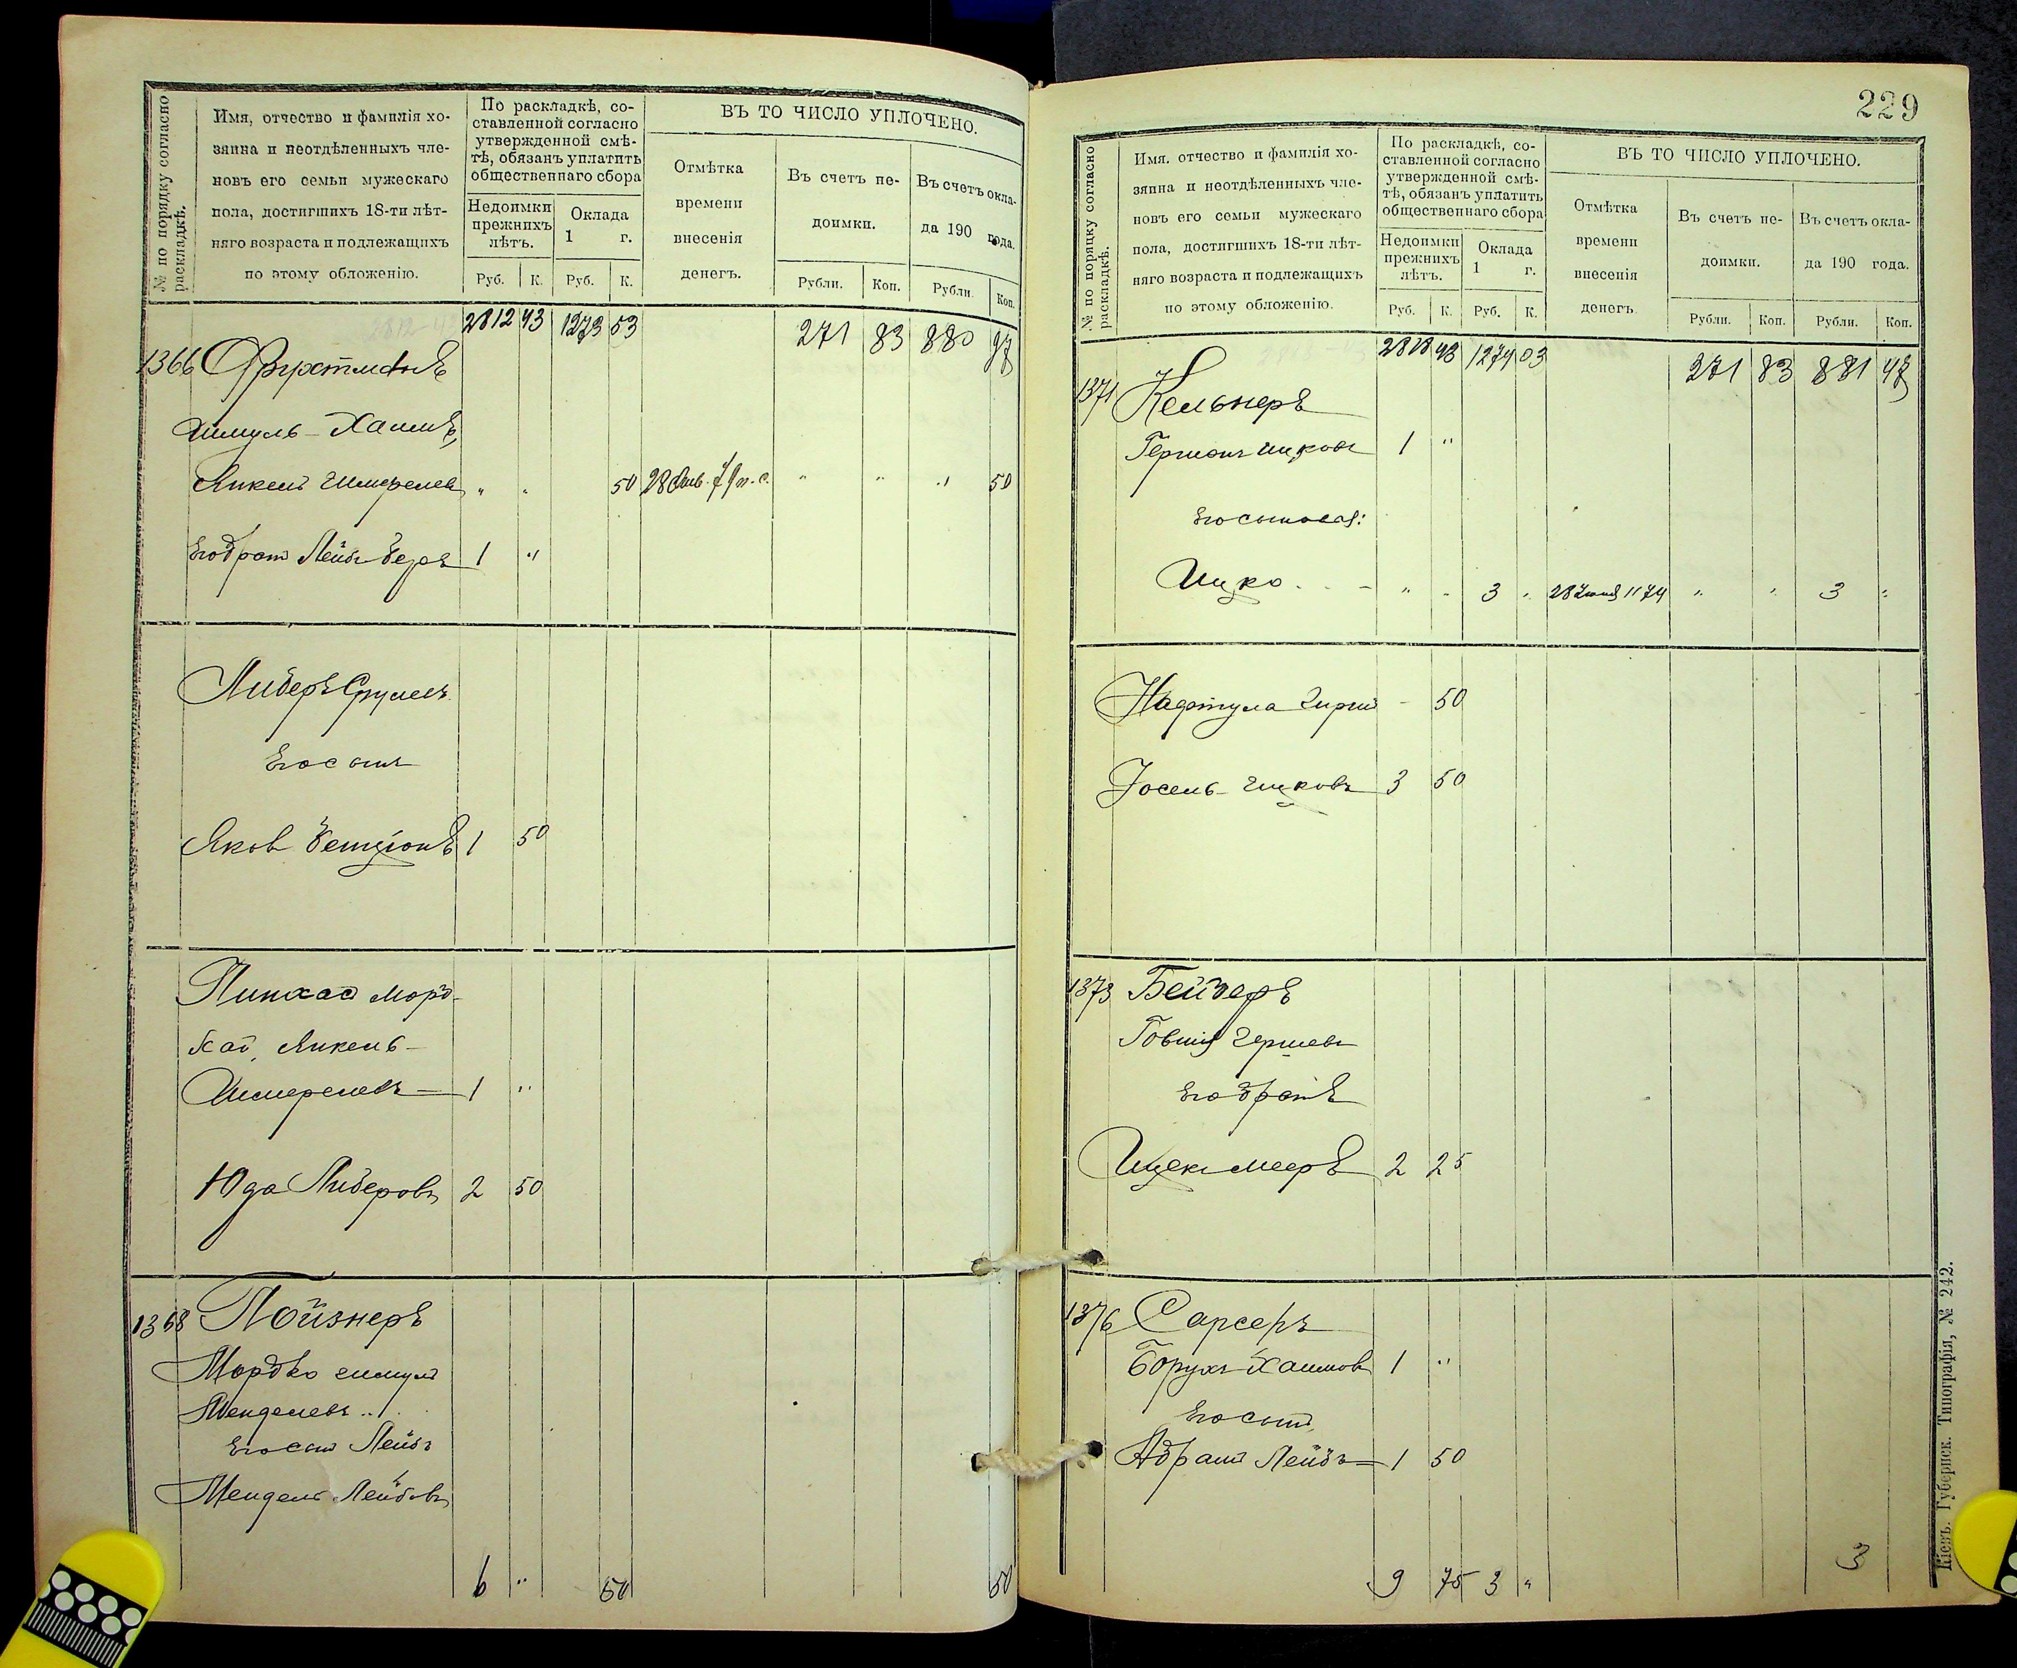 № по порядку согласно раскладкѣ.
Имя, отчество и фамилія хо-
зяина и неотдѣленныхъ чле-
новъ его семьи мужескаго
пола, достигшихъ 18-ти лѣт-
няго возраста и подлежащихъ
по этому обложенію.
По раскладкѣ, со-
ставленной согласно
утвержденной смѣ-
тѣ, обязанъ уплатить
общественнаго сбора
Недоимки
прежнихъ
лѣтъ.
Оклада
1 г.
Руб. К. Руб. К.
ВЪ ТО ЧИСЛО УПЛОЧЕНО.
Отмѣтка
времени
внесенія
денегъ.
Въ счетъ не-
доимки.
Въ счетъ окла-
да 190 года.
Рубли. Коп. Рубли. Коп.
2812 43 1273 53 271 83 880 97
1366
Шмуль-Хаимъ,
Янкель Шмерелев " " 50 28 " " " 50
Его брат Лейб Беръ 1 "
Либеръ Срулевъ
Его сынъ
Яков Бенціонъ 1 50
Пинхас Морд-
хай, Янкель-
Шмерелевъ 1 "
Юда Либеровъ 2 50
1368 Пойзнеръ
Мордко Шмуль
Менделевъ
Его сын Лейбъ
Мендель Лейбовъ
6 " 50 50
229
№ по порядку согласно раскладкѣ.
Имя, отчество и фамилія хо-
зяина и неотдѣленныхъ чле-
новъ его семьи мужескаго
пола, достигшихъ 18-ти лѣт-
няго возраста и подлежащихъ
по этому обложенію.
По раскладкѣ, со-
ставленной согласно
утвержденной смѣ-
тѣ, обязанъ уплатить
общественнаго сбора
Недоимки
прежнихъ
лѣтъ.
Оклада
1 г.
Руб. К. Руб. К.
ВЪ ТО ЧИСЛО УПЛОЧЕНО.
Отмѣтка
времени
внесенія
денегъ.
Въ счетъ не-
доимки.
Въ счетъ окла-
да 190 года.
Рубли. Коп. Рубли. Коп.
2818 43 1274 03 271 83 881 47
1371 Кельнеръ
Гершонъ Ицковъ 1 "
Его сыновья:
Ицко " " 3 " 28 Іюня 1174 " " 3 "
Нафтула Гирш - 50
Іосель Ицковъ 3 50
1373 Бейдеръ
Говшія Гершевъ
Его братъ
Ицек Мееръ 2 25
1376 Сарсеръ
Борухъ Хаимовъ 1 "
Его сынъ,
Абрам Лейбъ 1 50
9 75 3 " 3
Кіевъ. Губернск. Типографія, № 242.